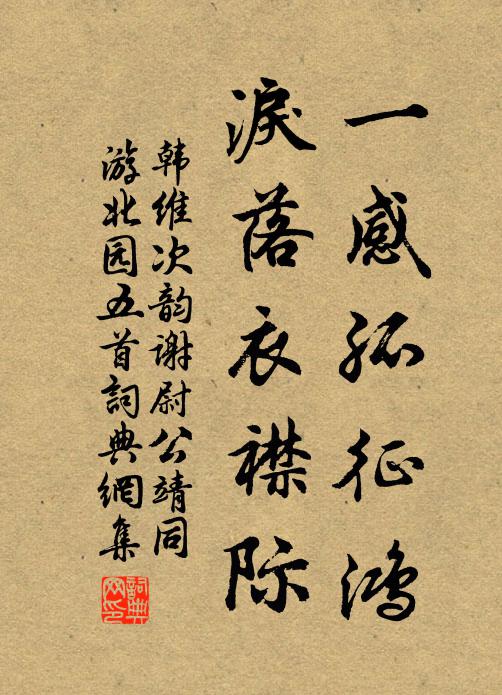 一感孤征鸿
淚落衣襟际
韩维次韵谢尉公靖同
游北园五首詞典網集